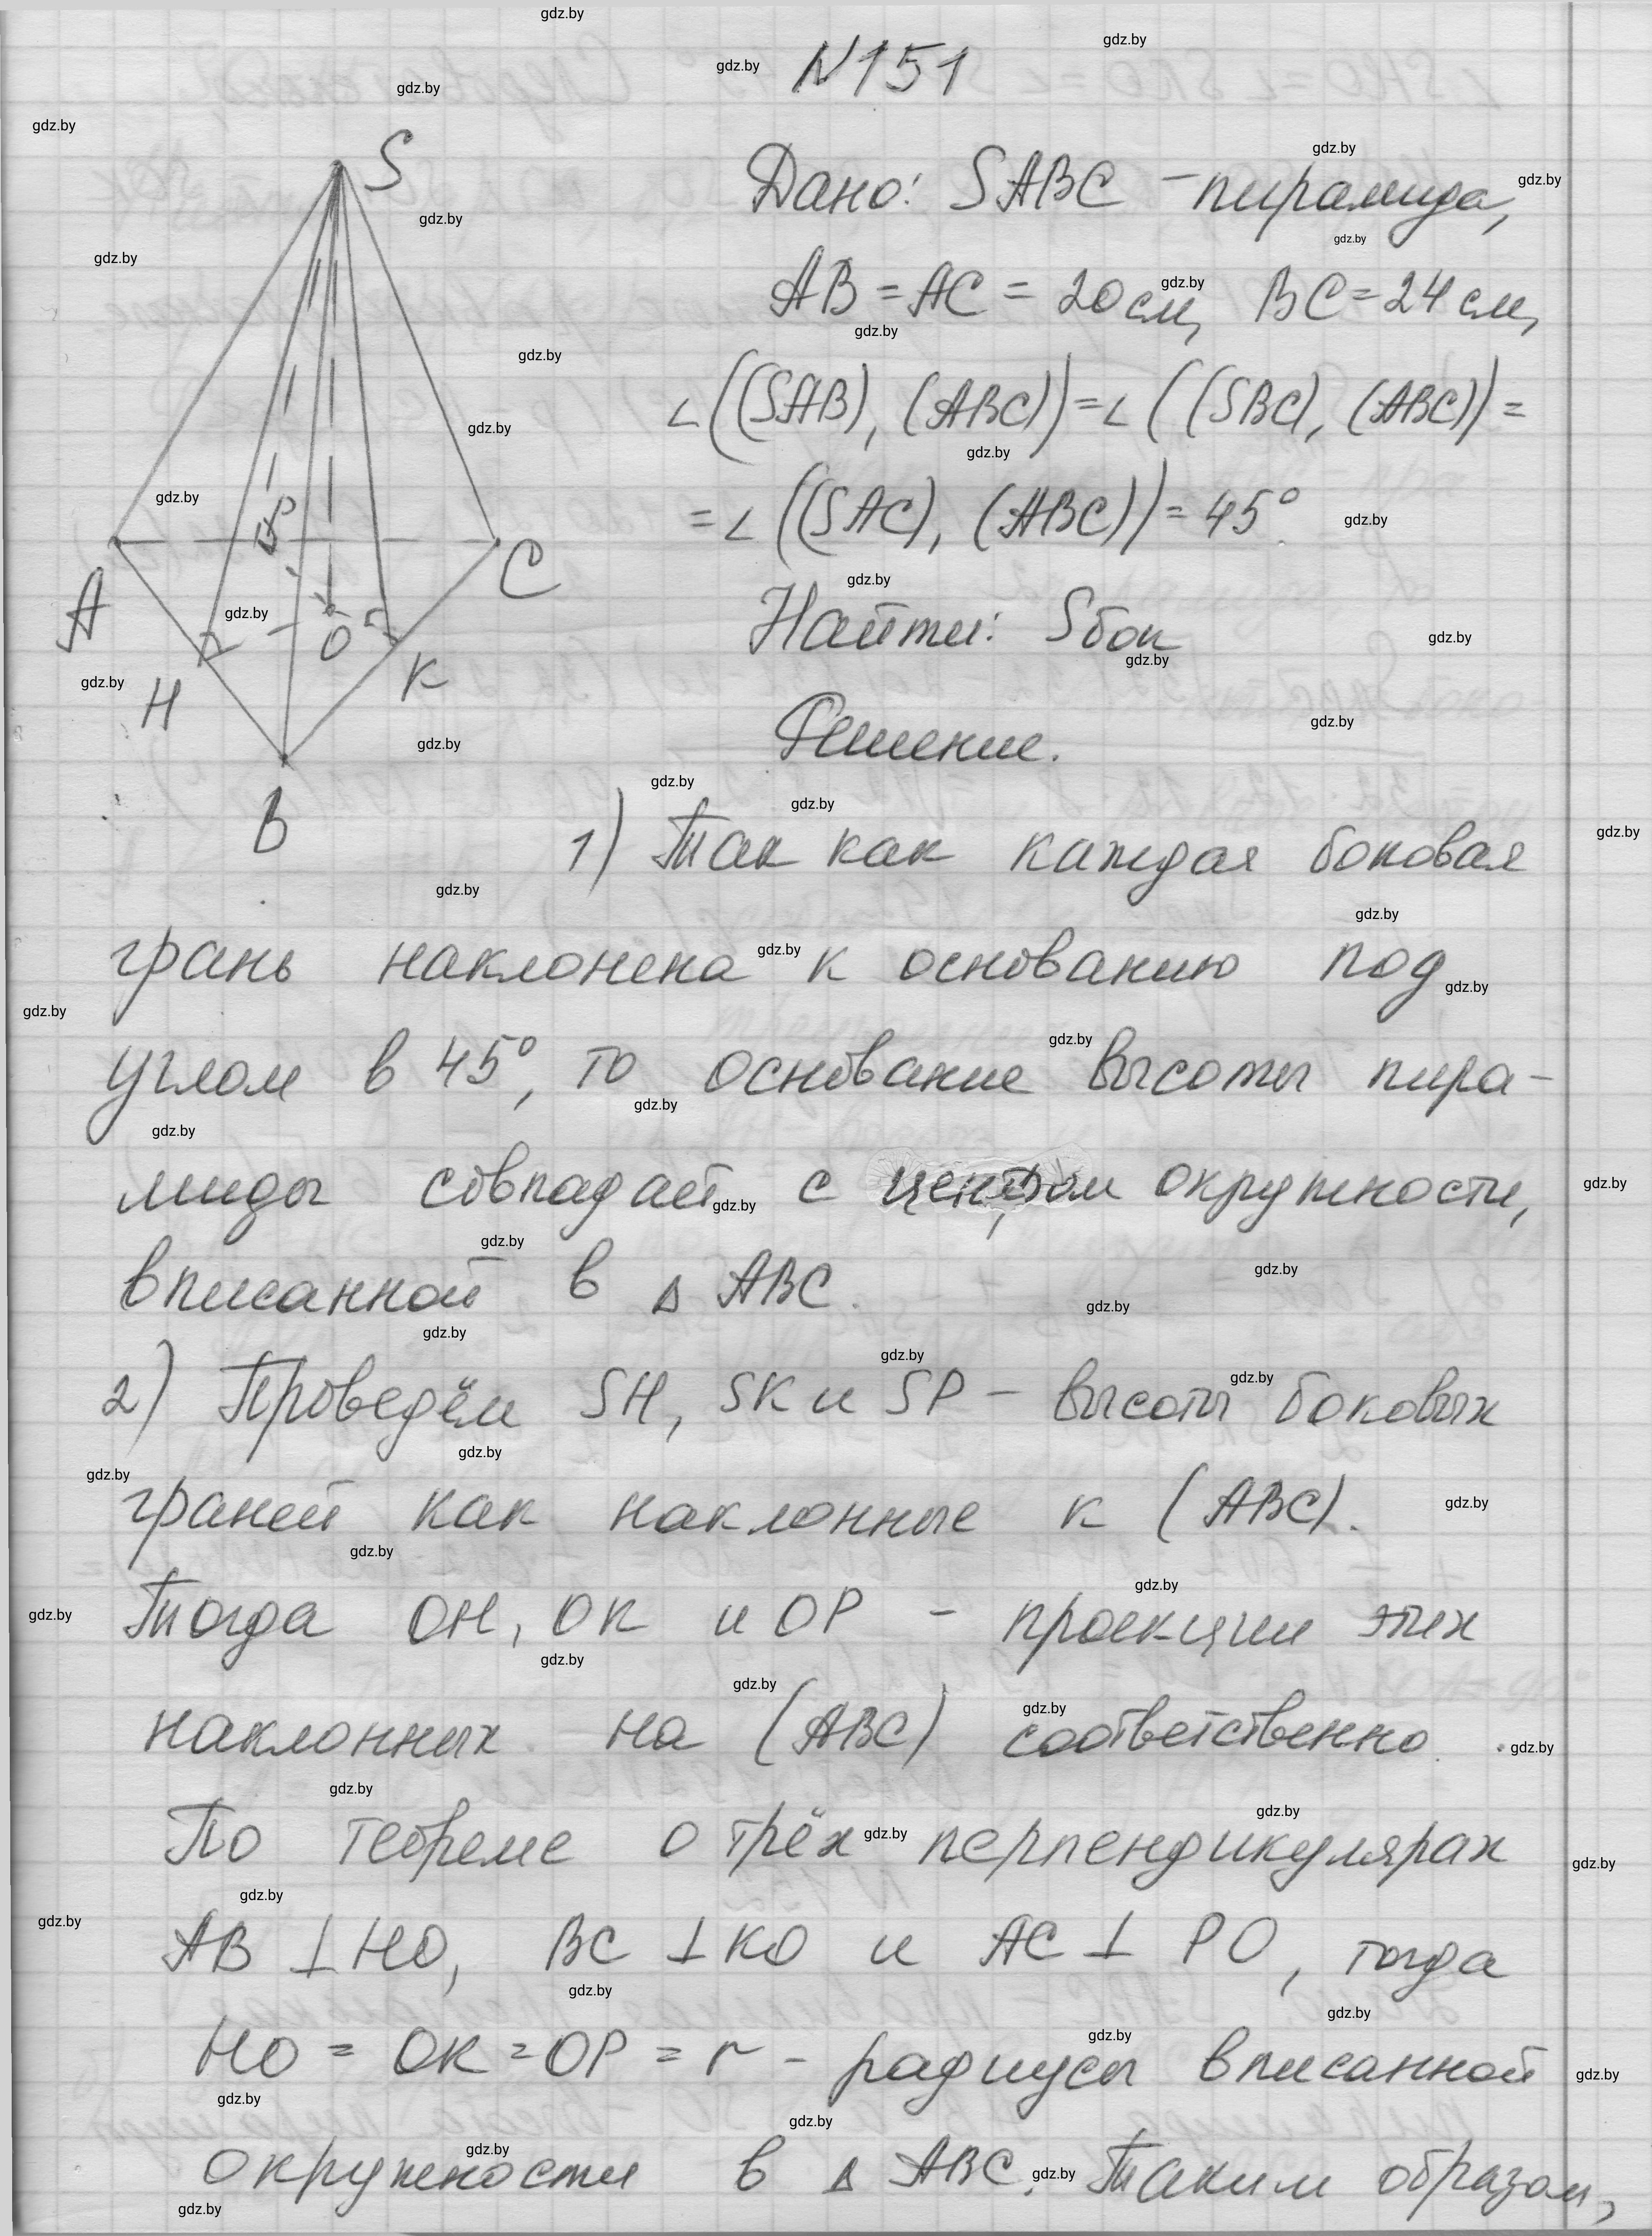 N151
S
Дано: SABC - пирамида,
AB = AC = 20 см, BC = 24 см,
∠((SAB), (ABC)) = ∠((SBC), (ABC)) =
= ∠((SAC), (ABC)) = 45°.
P
A
C
O
H
K
B
Найти: Sбок
Решение.
1) Так как каждая боковая
грань наклонена к основанию под
углом в 45°, то основание высоты пира-
миды совпадает с центром окружности,
вписанной в △ ABC.
2) Проведём SH, SK и SP - высоты боковых
граней как наклонные к (ABC).
Тогда OH, OK и OP - проекции этих
наклонных на (ABC) соответственно.
По теореме о трёх перпендикулярах
AB ⊥ HO, BC ⊥ KO и AC ⊥ PO, тогда
HO = OK = OP = r - радиусы вписанной
окружности в △ ABC. Таким образом,
gdz.by